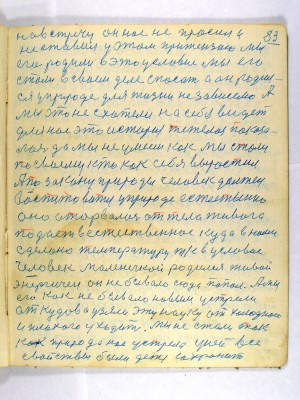 навстречу он нас не просил и 83
не ставил у этом притензию мы
его родили в это условие мы его
стали в своем деле спосать а он родил
ся у природе для жизни независемо А
мы это не схотели на себя
для нас это история тежелая показа
лася да мы не умеем как мы стали
по своему кто как себя вырастил
А по закону природы человек должен
Рости по пути у природе естественно
оно оторвалося от тела живого
подает в естественное куда в нами
сделано температуру т/к в условие
человек маленичкой родился живой
энергичен он не бывало сюда попал. А мы
его как не бывало новым устрели
откудова взяли эту науку от холодного
и плохого уходит. Мы не стали так
как природа нас устрела у ней все
свойствы были дети сохранит